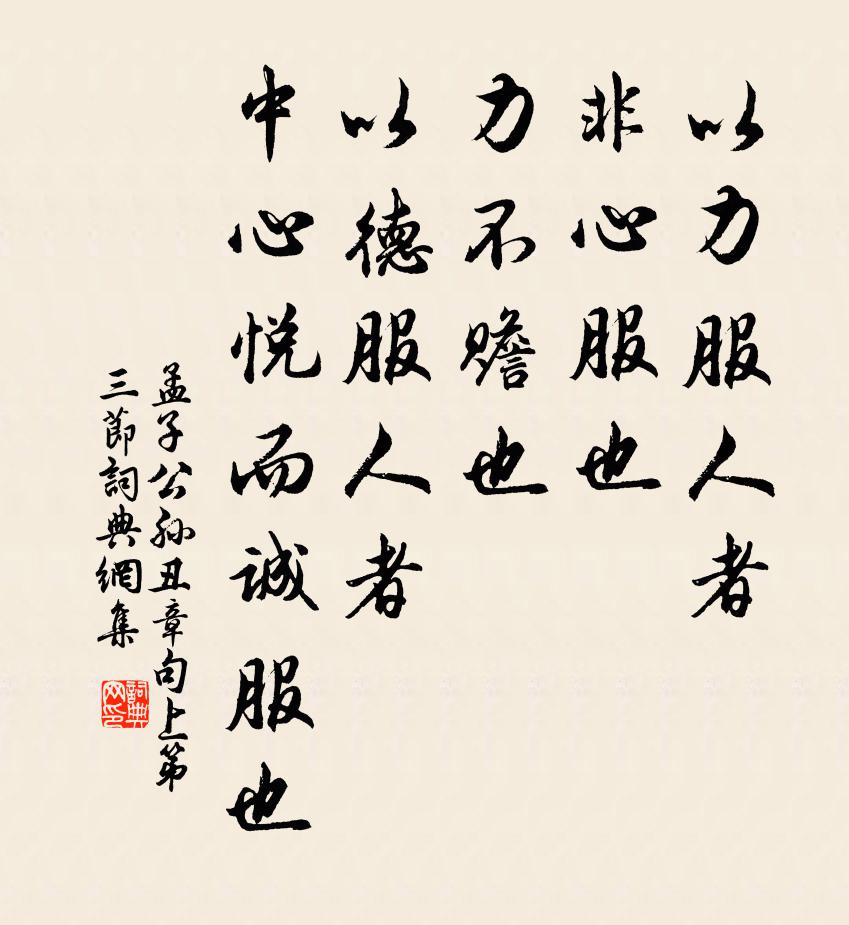 以力服人者
非心服也
力不贍也
以德服人者
中心悦而誠服也
孟子公孫丑章句上第
三節詞典網集
詞典
网印